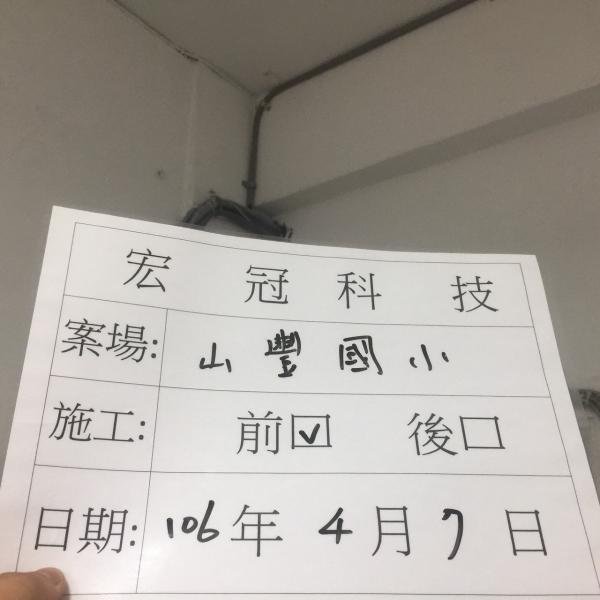 宏冠科技
案場: 山豐國小
施工: 前☑ 後☐
日期: 106年4月7日